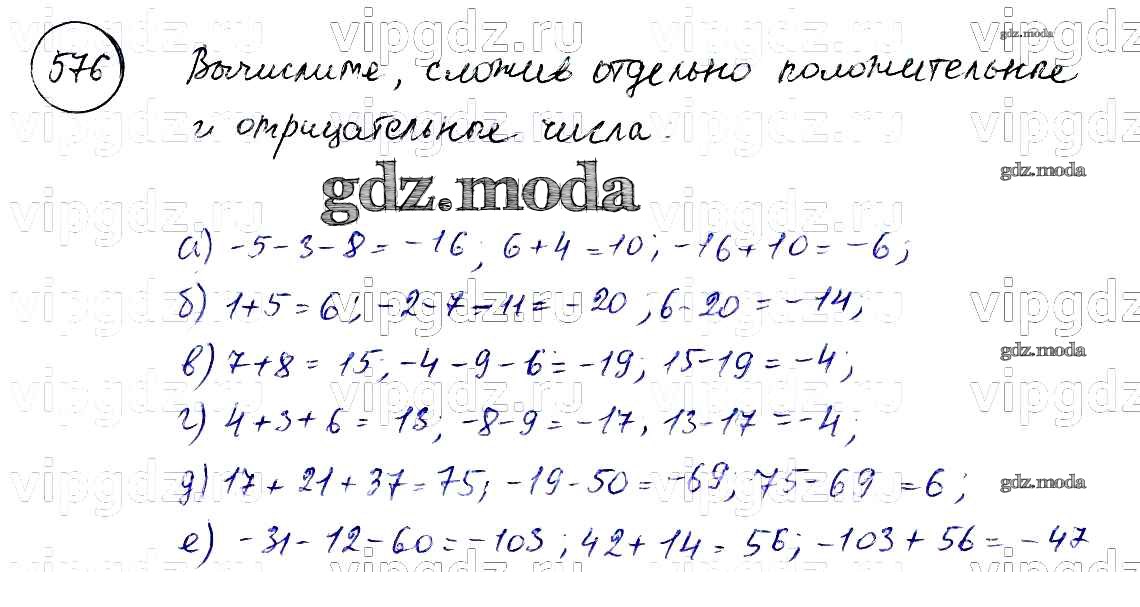 576 Вычислите, сложив отдельно положительные
и отрицательные числа.
gdz.moda
а) -5-3-8=-16; 6+4=10; -16+10=-6;
б) 1+5=6; -2-7-11=-20; 6-20=-14;
в) 7+8=15; -4-9-6=-19; 15-19=-4;
г) 4+3+6=13; -8-9=-17, 13-17=-4;
д) 17+21+37=75; -19-50=-69; 75-69=6;
е) -31-12-60=-103; 42+14=56; -103+56=-47